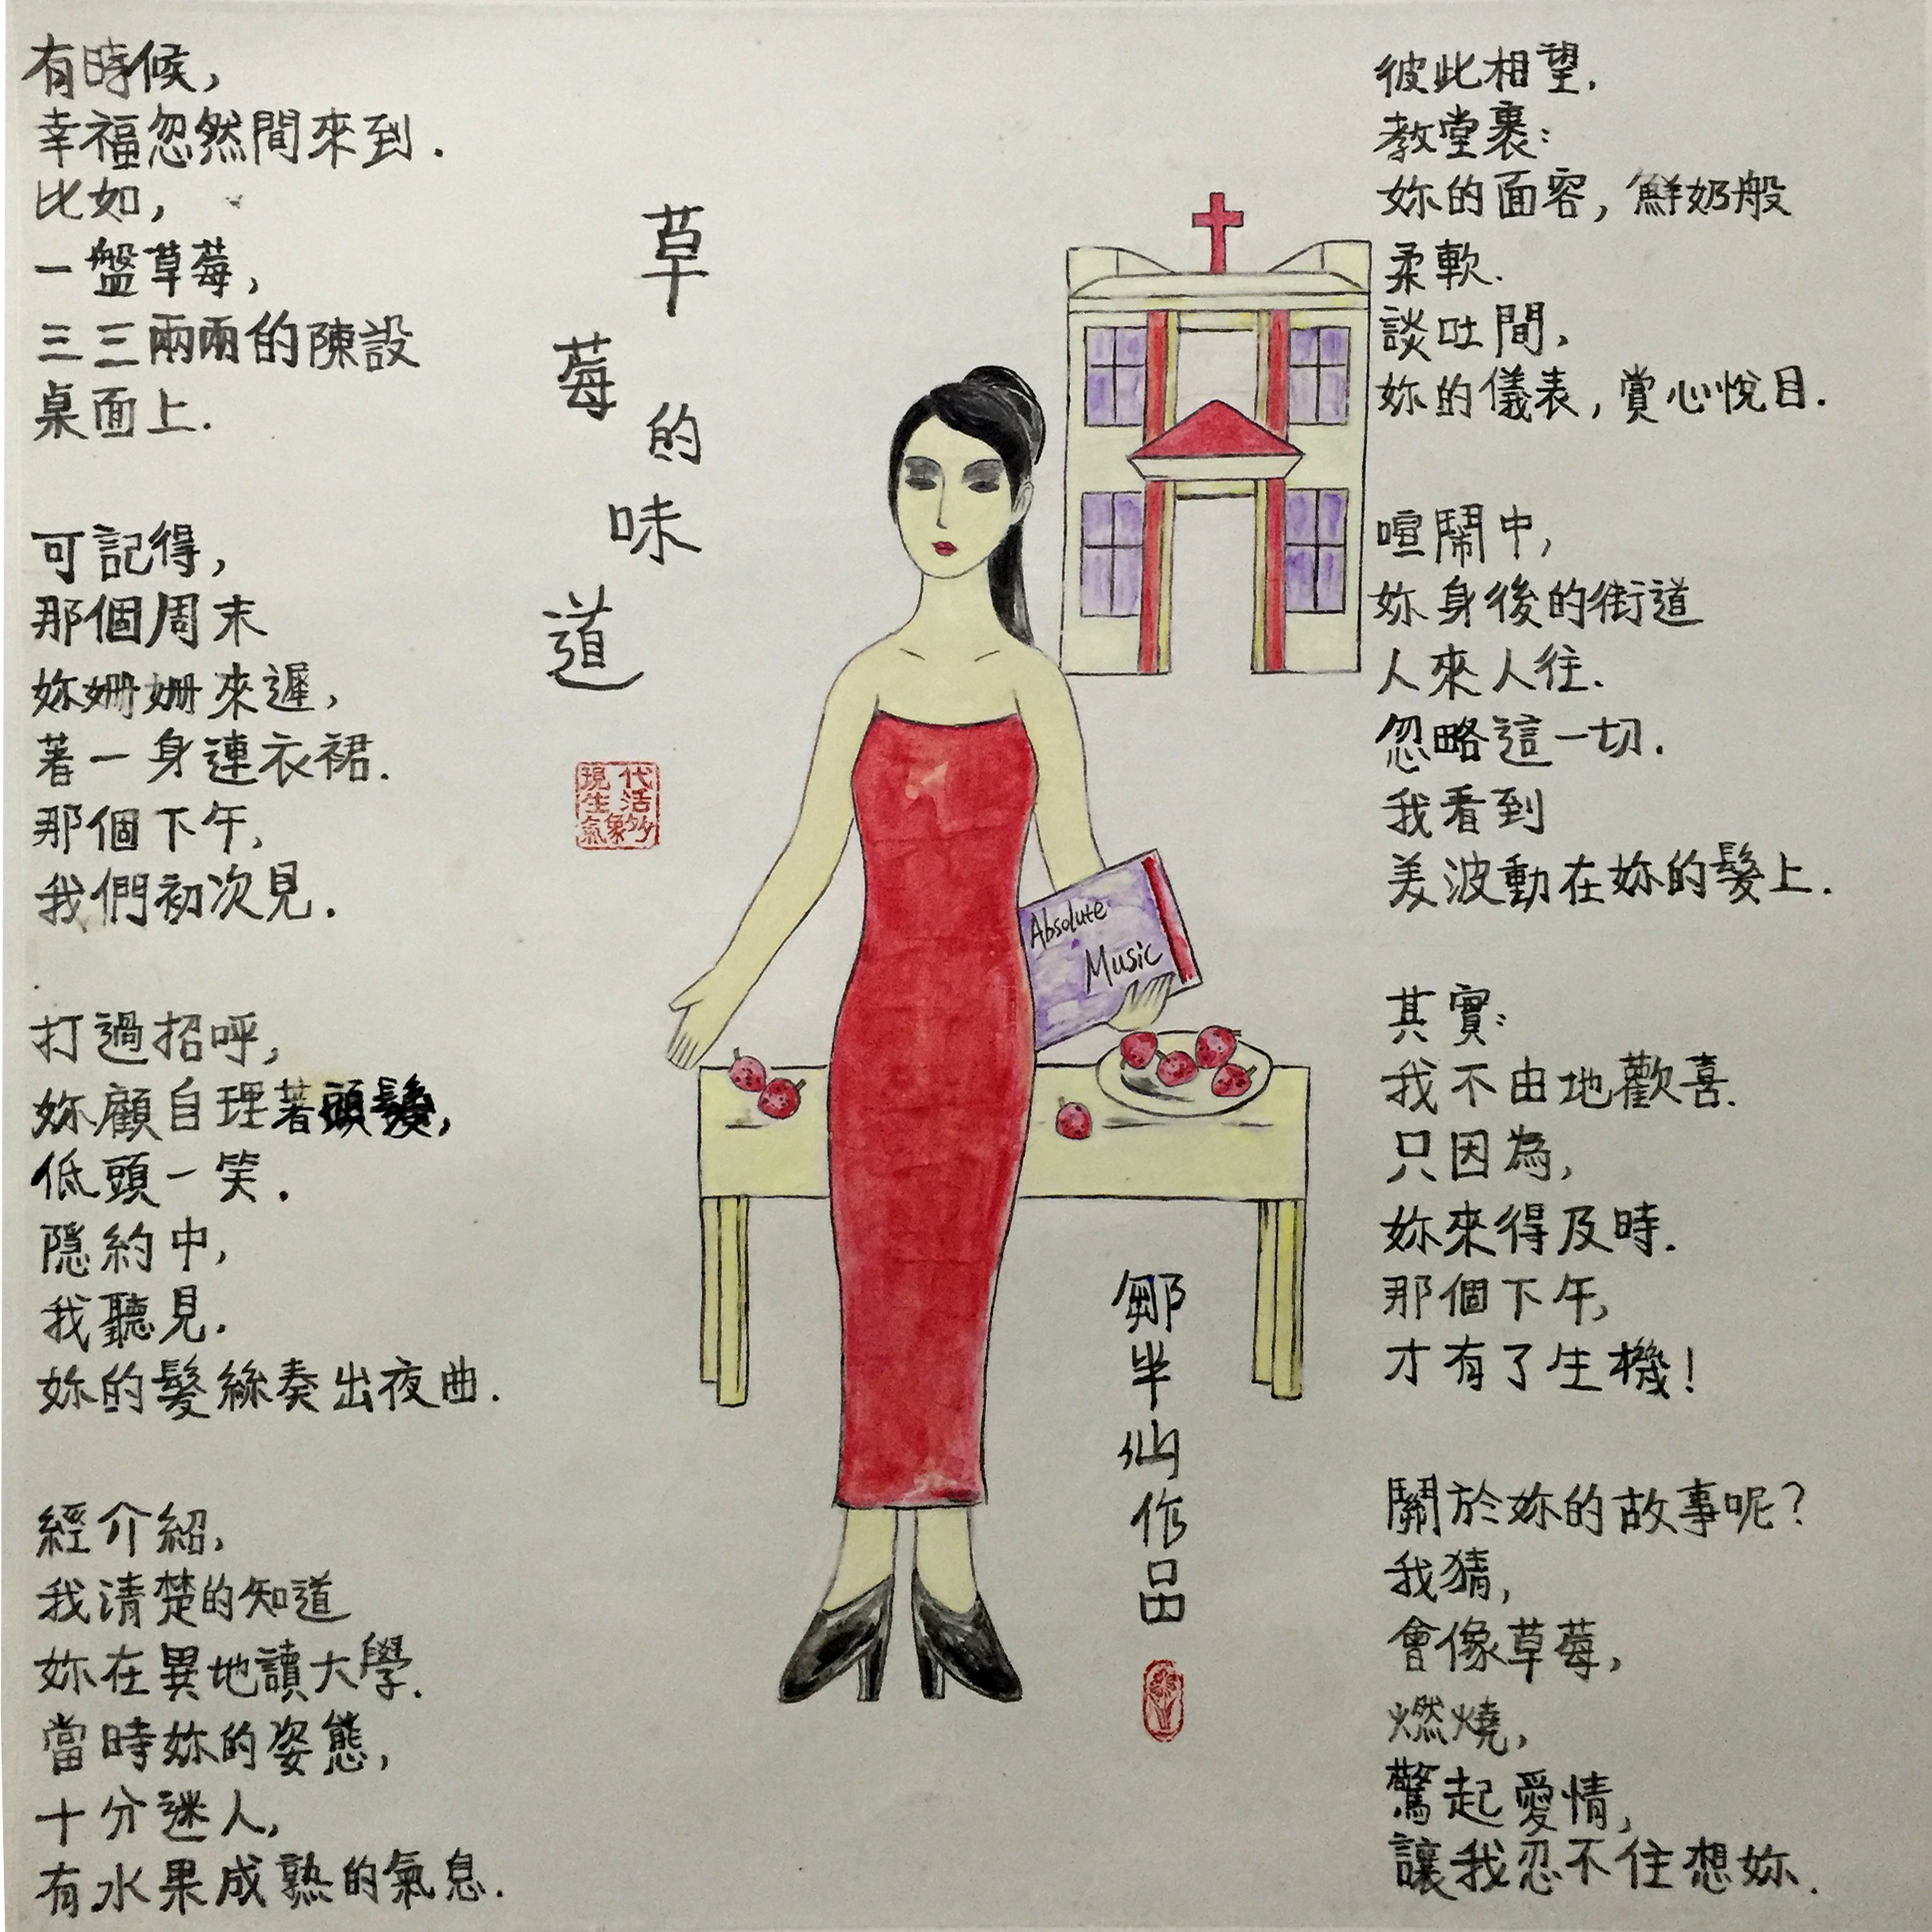 草莓的味道
有時候，
幸福忽然間來到．
比如，
一盤草莓，
三三兩兩的陳設
桌面上．
可記得，
那個周末
妳姍姍來遲，
著一身連衣裙．
那個下午，
我們初次見．
打過招呼，
妳顧自理著頭髮，
低頭一笑．
隱約中，
我聽見．
妳的髮絲奏出夜曲．
經介紹，
我清楚的知道
妳在異地讀大學．
當時妳的姿態，
十分迷人，
有水果成熟的氣息．
彼此相望．
教堂裹：
妳的面容，鮮奶般
柔軟．
談吐間，
妳的儀表，賞心悅目．
喧鬧中，
妳身後的街道
人來人往．
忽略這一切．
我看到
美波動在妳的髮上．
其實：
我不由地歡喜．
只因為，
妳來得及時．
那個下午，
才有了生機！
關於妳的故事呢？
我猜，
會像草莓，
燃燒，
驚起愛情，
讓我忍不住想妳．
Absolute
Music
鄒半仙作品
代活
現生氣象